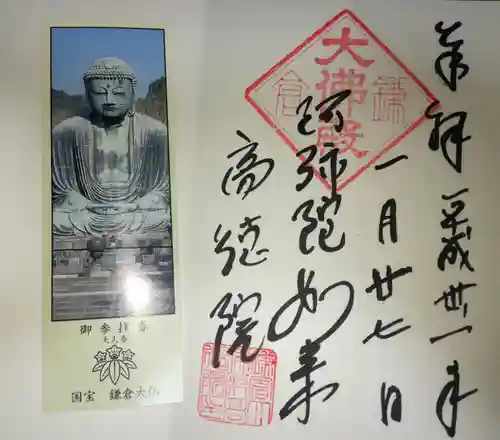 奉拝
平成卅一年
一月廿七日
大佛殿
鎌倉
阿弥陀如来
高徳院
御参拝券
大人券
国宝 鎌倉大仏